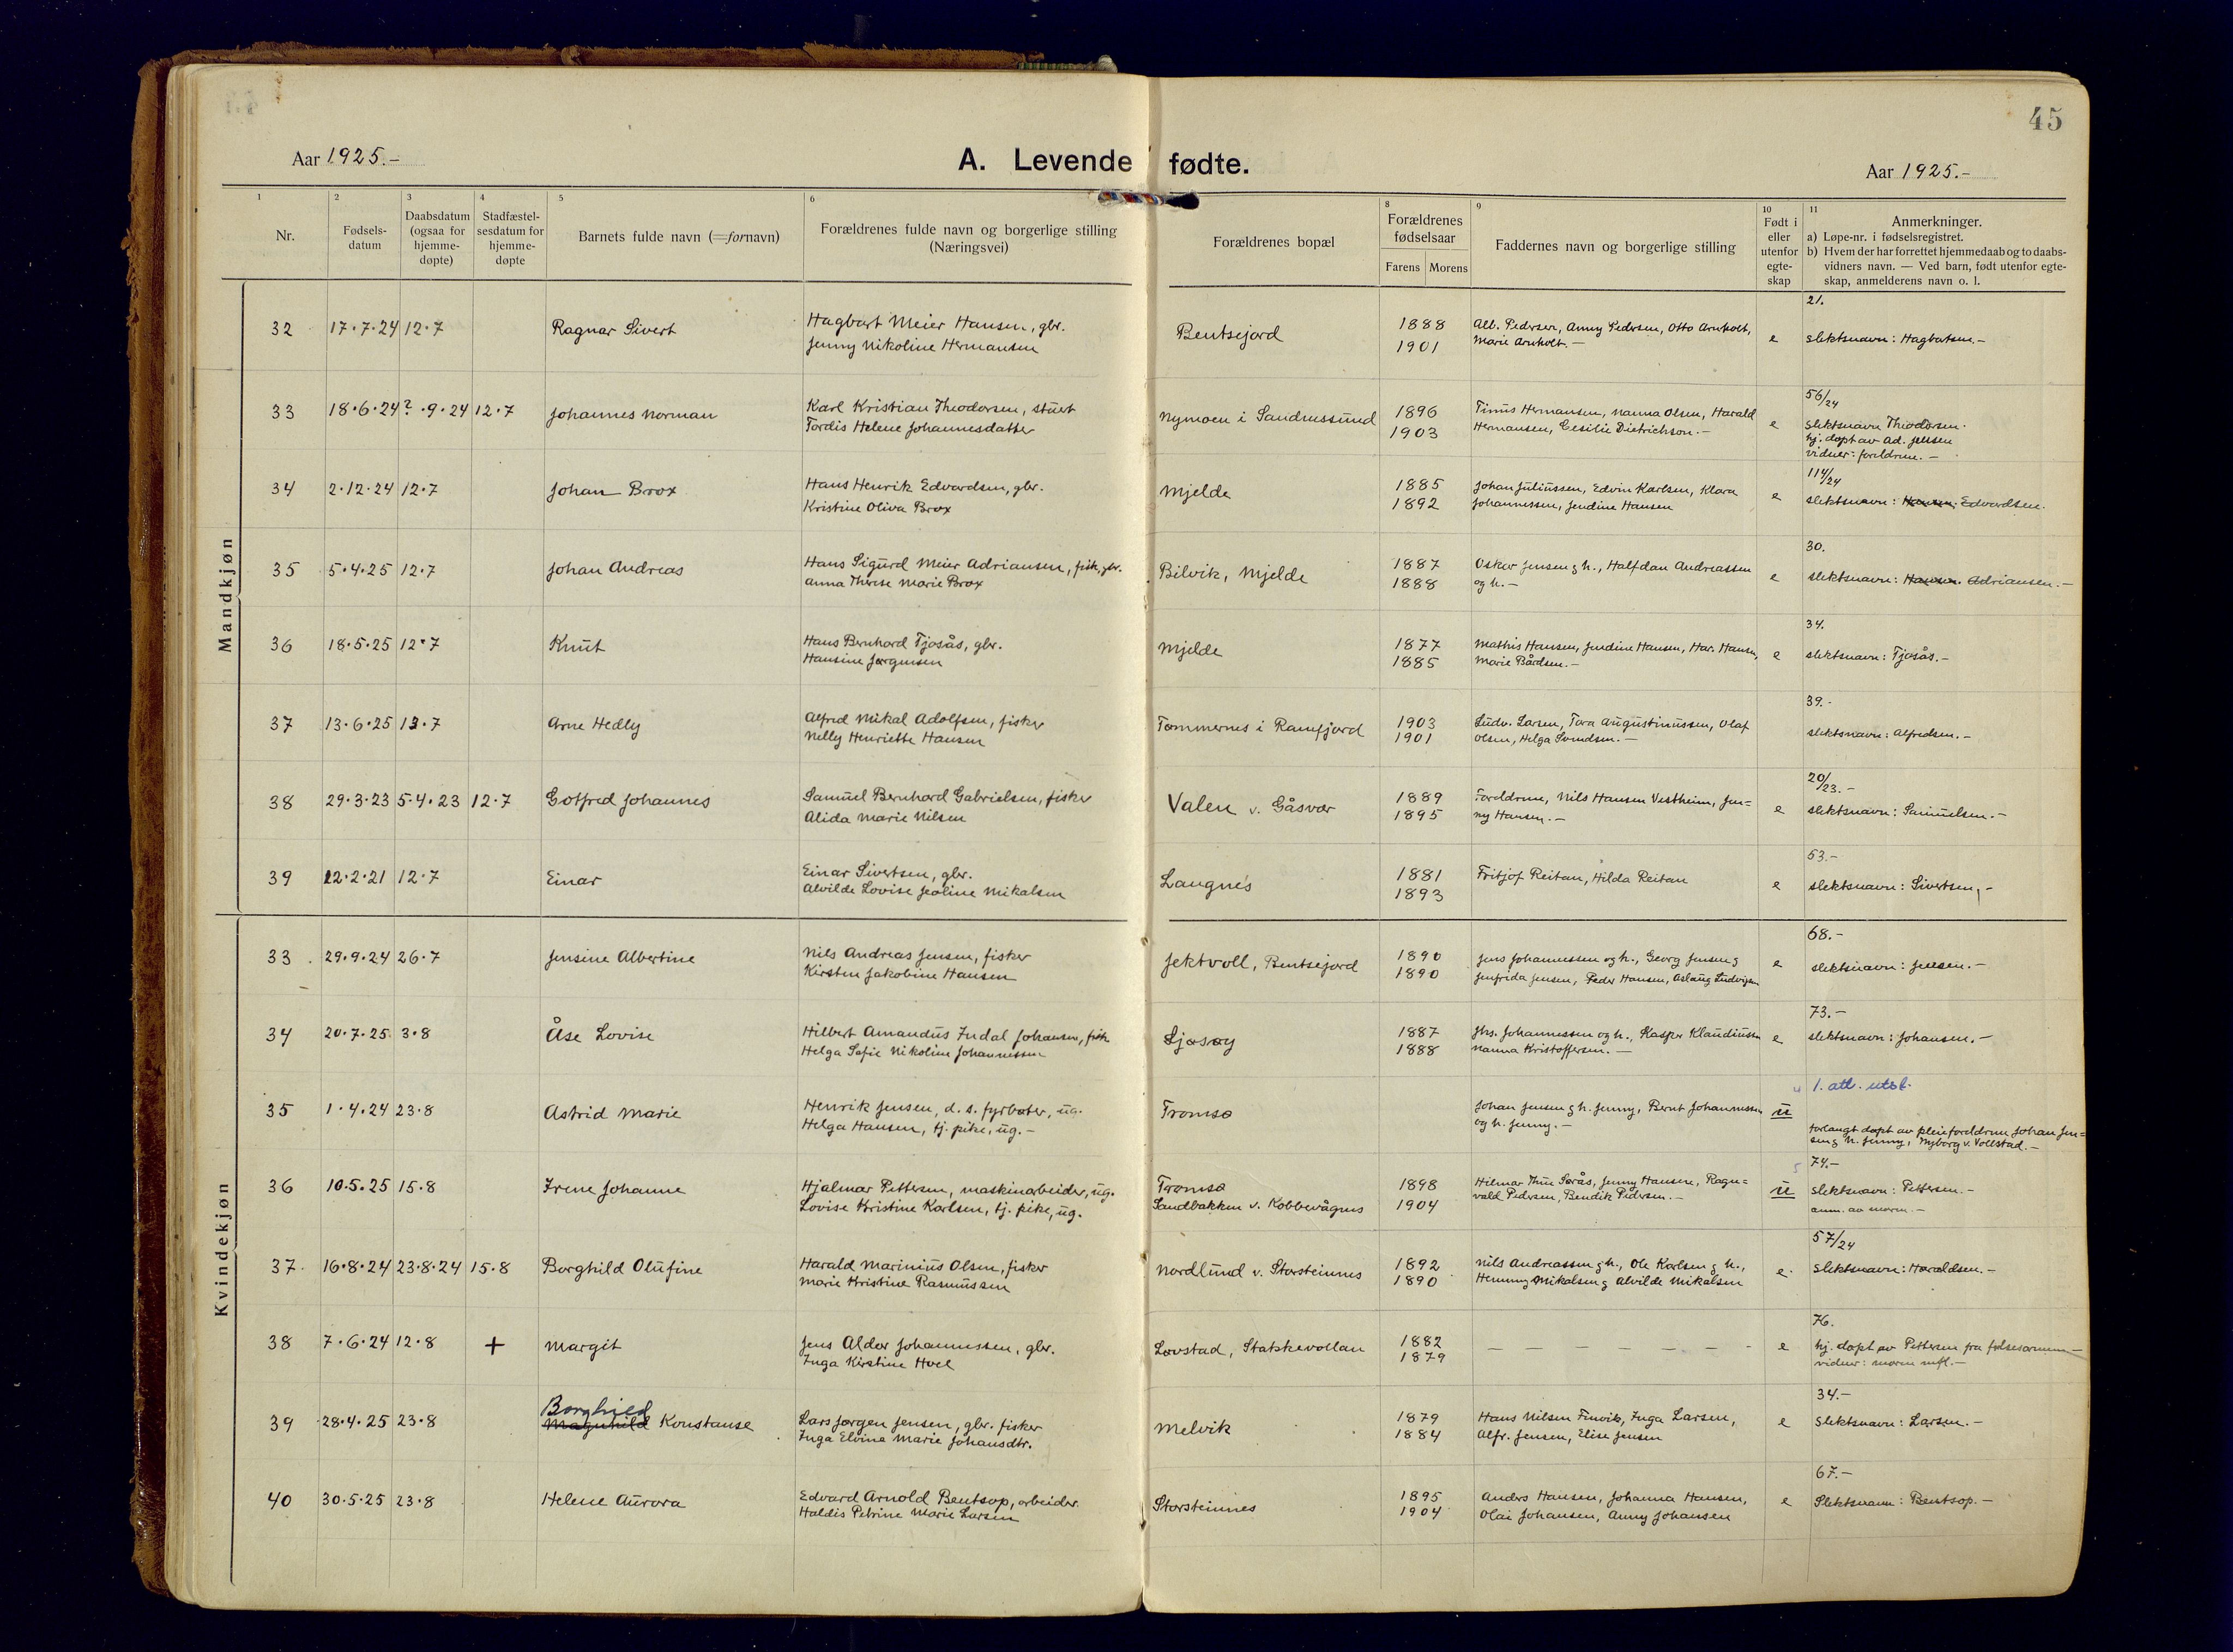 45
Aar 1925.-
A. Levende fødte.
Aar 1925.-
1 2 3 4 5 6 8 9 10 11
Nr.
Fødsels-
datum
Daabsdatum
(ogsaa for
hjemme-
døpte)
Stadfæstel-
sesdatum for
hjemme-
døpte
Barnets fulde navn (=fornavn)
Forældrenes fulde navn og borgerlige stilling
(Næringsvei)
Forældrenes bopæl
Forældrenes
fødselsaar
Farens Morens
Faddernes navn og borgerlige stilling
Født i
eller
utenfor
egte-
skap
Anmerkninger.
a) Løpe-nr. i fødselsregistret.
b) Hvem der har forrettet hjemmedaab og to daabs-
vidners navn. — Ved barn, født utenfor egte-
skap, anmelderens navn o. l.
Mandkjøn
21.
32 17.7.24 12.7 Ragnar Sivert Hagbart Meier Hansen, gbr. Bentsejord 1888 Alb. Pedersen, Anny Pedersen, Otto Arnholt,
Jenny Nikoline Hermansen 1901 Marie Arnholt.- e slektsnavn: Hagbartsen.-
56/24
33 18.6.24 ?.9.24 12.7 Johannes Norman Karl Kristian Theodorsen, stuert Nymoen i Sandnessund 1896 Tinus Hermansen, Nanna Olsen, Harald
Tordis Helene Johannesdatter 1903 Hermansen, Cesilie Dietrichson.- e slektsnavn Theodorsen.
hj. døpt av Ad. Jenssen
vidner: foreldrene.-
114/24
34 2.12.24 12.7 Johan Brox Hans Henrik Edvardsen, gbr. Mjelde 1885 Johan Juliussen, Edvin Karlsen, Klara
Kristine Oliva Brox 1892 Johannessen, Jendine Hansen e slektsnavn: Hansen. Edvardsen.
30.
35 5.4.25 12.7 Johan Andreas Hans Sigurd Meier Adriansen, fisk. gbr. Bilvik, Mjelde 1887 Oskar Jensen g h., Halfdan Andreassen
Anna Therese Marie Brox 1888 og h.- e slektsnavn: Hansen. Adriansen.-
34.
36 18.5.25 12.7 Knut Hans Bernhard Tjosås, gbr. Mjelde 1877 Mathis Hansen, Jendine Hansen, Har. Hansen,
Hansine Jørgensen 1885 Marie Bårdsen.- e slektsnavn: Tjosås.-
39.-
37 13.6.25 12.7 Arne Hedly Alfred Mikal Adolfsen, fisker Tømmernes i Ramfjord 1903 Ludv. Larsen, Tora Augustinussen, Olaf
Nelly Henriette Hansen 1901 Olsen, Helga Svendsen.- slektsnavn: Alfredsen.-
20/23.-
38 29.3.23 5.4.23 12.7 Gotfred Johannes Samuel Bernhard Gabrielsen, fisker Valen v. Gåsvær 1889 Foreldrene, Nils Hansen Vestheim, Jen-
Alida Marie Nilsen 1895 ny Hansen.- e slektsnavn: Samuelsen.-
53.-
39 12.2.21 12.7 Einar Einar Sivertsen, gbr. Langnes 1881 Fritjof Reitan, Hilda Reitan
Alvilde Lovise Jeoline Mikalsen 1893 e slektsnavn: Sivertsen,-
Kvindekjøn
68.-
33 29.9.24 26.7 Jensine Albertine Nils Andreas Jensen, fisker Jektvoll, Bentsejord 1890 Jens Johannessen og h., Georg Jensen g
Kirsten Jakobine Hansen 1890 Jenfrida Jensen, Peder Hansen, Aslaug Ludvigsen e slektsnavn: Jensen.-
73.-
34 20.7.25 3.8 Åse Lovise Hilbert Amandus Indal Johansen, fisk. Ljøsøy 1887 Jhs. Johannessen og h., Kasper Klaudiussen
Helga Sofie Nikoline Johannessen 1888 Nanna Kristoffersen.- e slektsnavn: Johansen.-
1. att. utst.
35 1.4.24 23.8 Astrid Marie Henrik Jensen, d.s. fyrbøter, ug. Tromsø Johan Jensen g h. Jenny, Bernt Johannessen
Helga Hansen, tj. pike, ug.- og h. Jenny.- u forlangt døpt av pleieforeldrene Johan Jen=
sen g h. Jenny, Nyborg v. Vollstad.-
74.-
36 10.5.25 15.8 Irene Johanne Hjalmar Pettersen, maskinarbeider, ug. Tromsø 1898 Hilmar Thue Sørås, Jenny Hansen, Ragn-
Lovise Kristine Karlsen, tj. pike, ug. Sandbakken v. Kobbevågnes 1904 vald Pedersen, Bendik Pedersen.- u slektsnavn: Pettersen.-
anm. av moren.-
57/24
37. 16.8.24 23.8.24 15.8 Borghild Olufine Harald Marinius Olsen, fisker Nordlund v. Storsteinnes 1892 Nils Andreassen g h., Ole Karlsen g h.,
Marie Kristine Rasmussen 1890 Henning Mikalsen g Alvilde Mikalsen e slektsnavn: Haraldsen.-
76.
38 7.6.24 12.8 + Margit Jens Aldor Johannessen, gbr. Løvstad, Stakkevollan 1882 - - - - - - -
Inga Kirstine Hvel 1879 e hj. døpt av Pettersen fra
vidner: moren mfl.-
34.-
39 28.4.25 23.8 Borghild Magnhild Konstanse Lars Jørgen Jensen, gbr. fisker Melvik 1879 Hans Nilsen Finvik, Inga Larsen,
Inga Elvine Marie Johansdtr. 1884 Alfr. Jensen, Elise Jensen e slektsnavn: Larsen.-
67.-
40 30.5.25 23.8 Helene Aurora Edvard Arnold Bentsop, arbeider. Storsteinnes 1895 Anders Hansen, Johanna Hansen,
Haldis Petrine Marie Larsen 1904 Olai Johansen, Anny Johansen e Slektsnavn: Bentsop.-